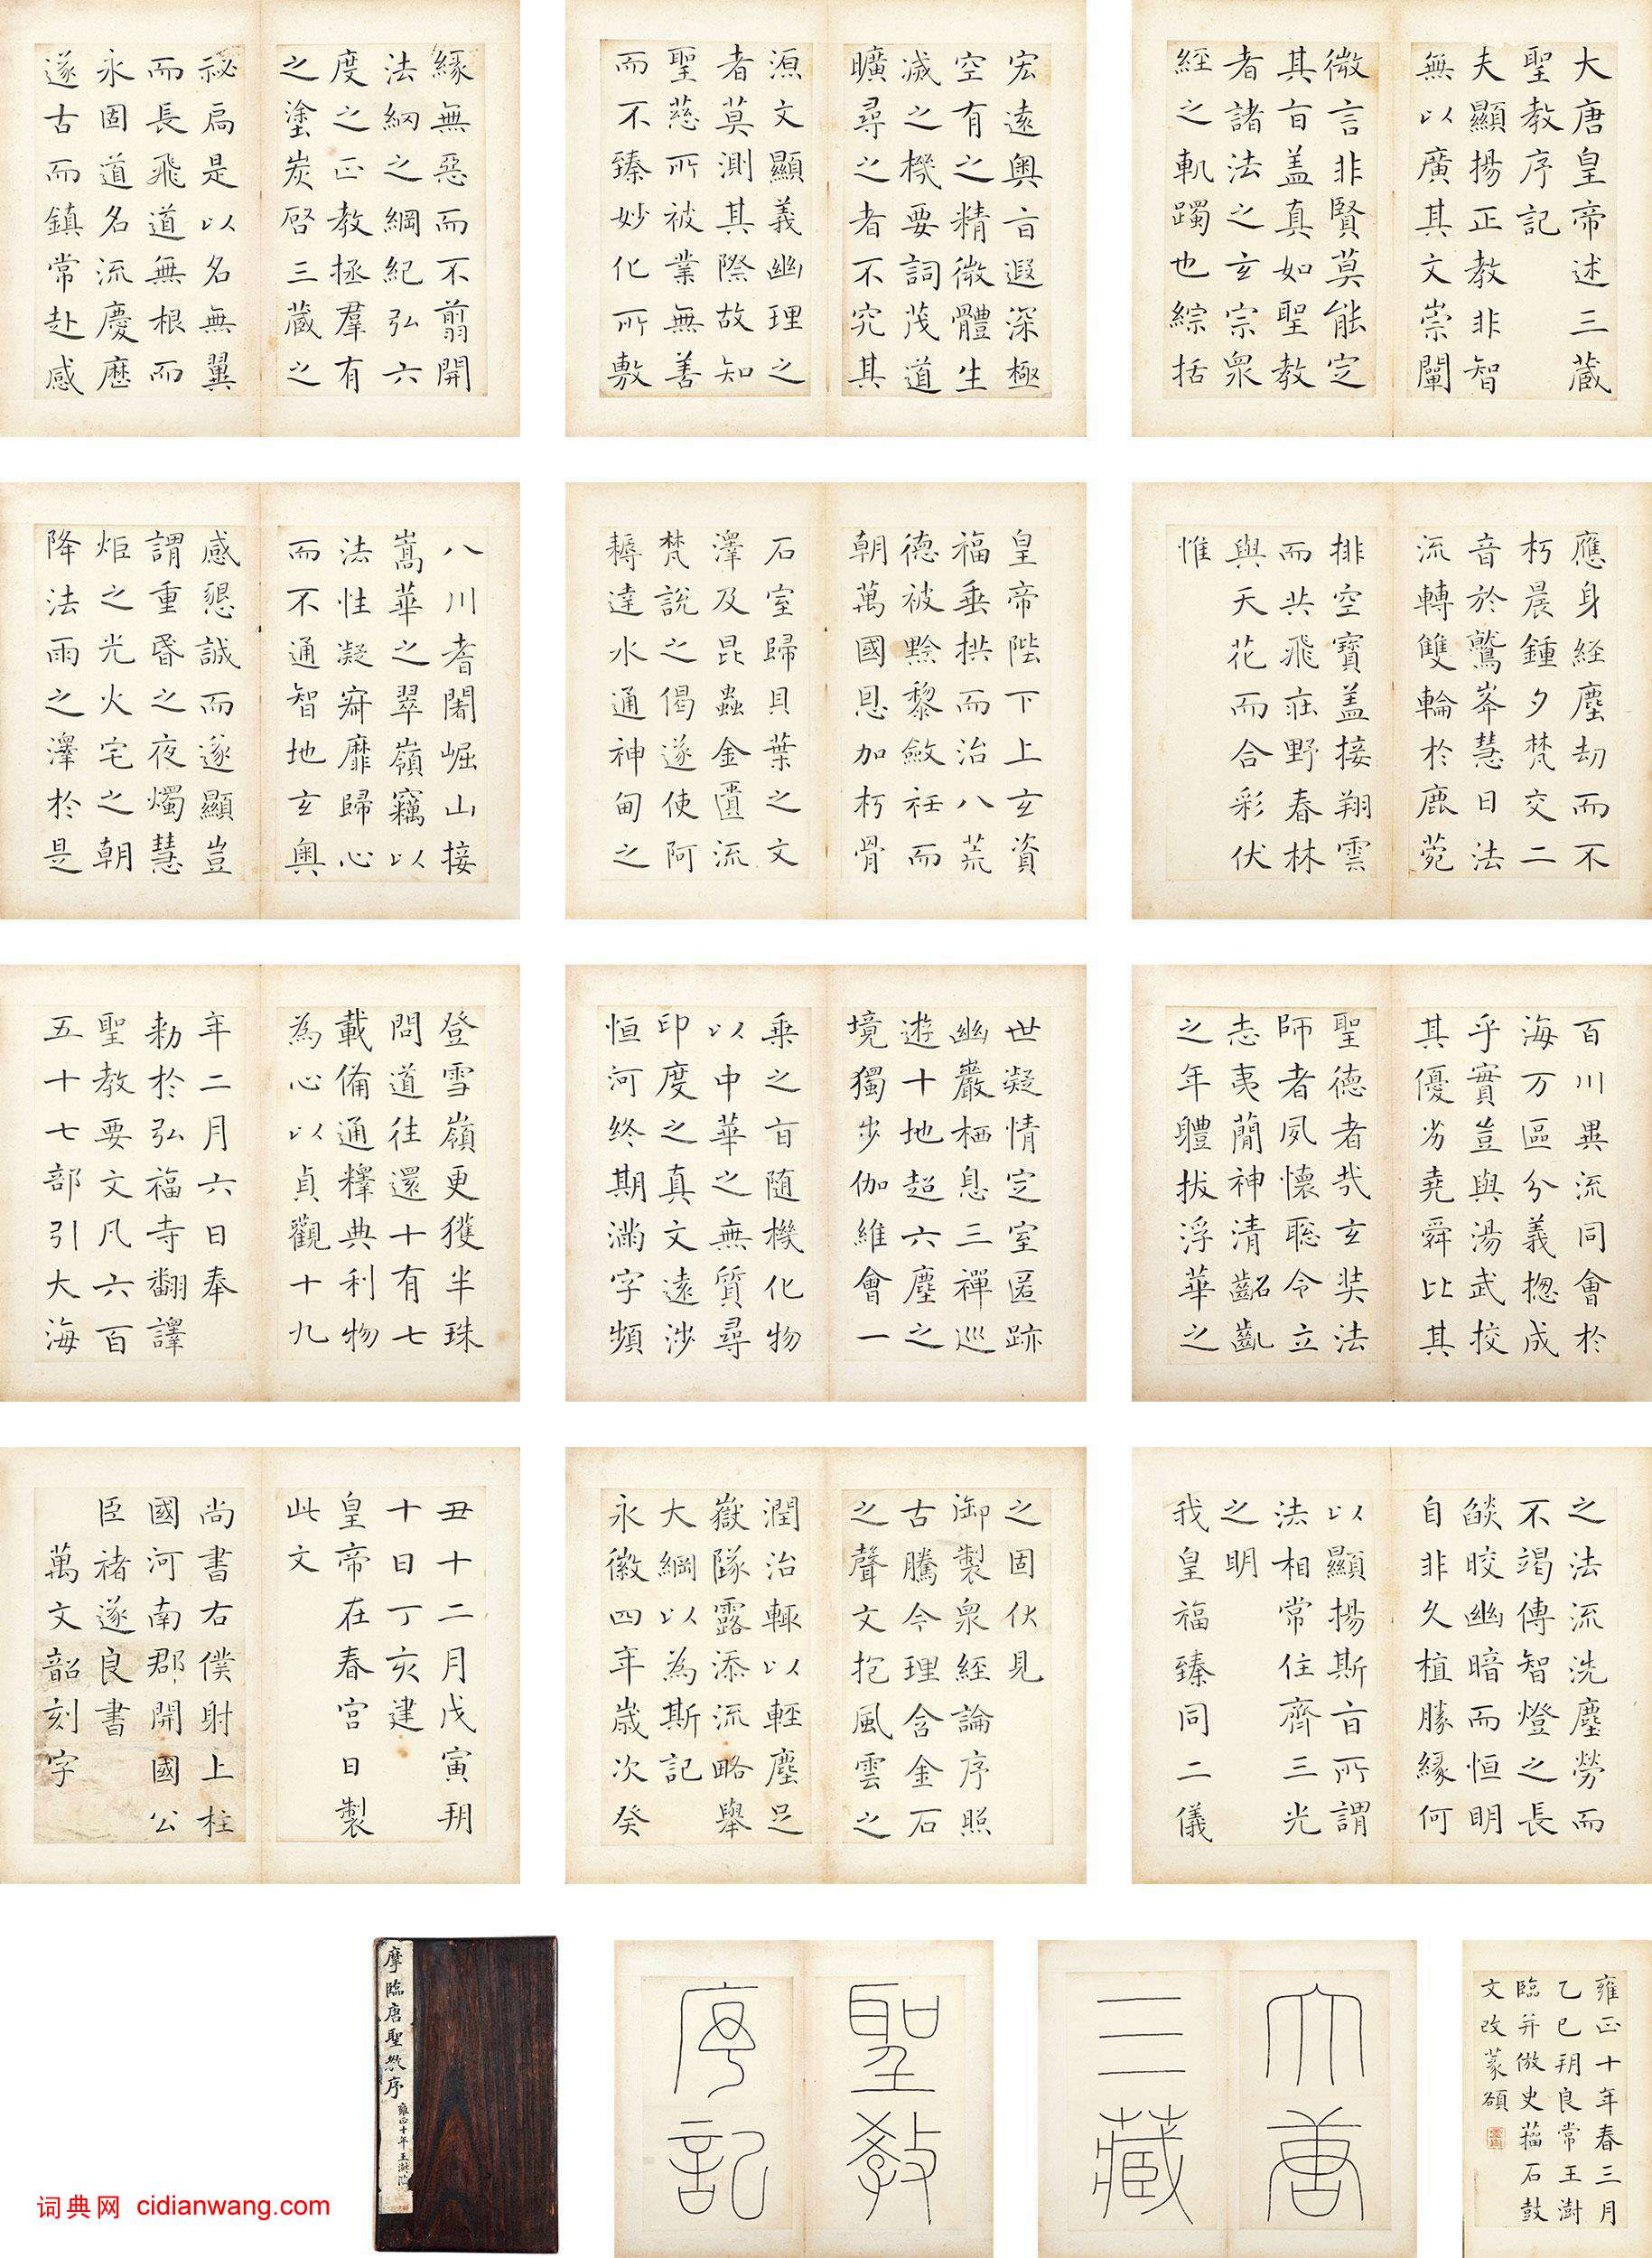 大唐皇帝述三藏
聖教序記
夫顯揚正教非智
無以廣其文崇闡
微言非賢莫能定
其旨盖真如聖教
者諸法之玄宗衆
経之軌躅也綜括
宏遠奧旨遐深極
空有之精微體生
滅之機要詞茂道
曠尋之者不究其
源文顯義幽理之
者莫測其際故知
聖慈所被業無善
而不臻妙化所敷
緣無惡而不翦開
法網之綱紀弘六
度之正教拯羣有
之塗炭啓三藏之
祕扃是以名無翼
而長飛道無根而
永固道名流慶歷
遂古而鎮常赴感
應身経塵劫而不
朽晨鍾夕梵交二
音於鷲峯慧日法
流轉雙輪於鹿菀
排空寶盖接翔雲
而共飛莊野春林
與天花而合彩伏
惟
皇帝陛下上玄資
福垂拱而治八荒
德被黔黎斂衽而
朝萬國恩加朽骨
石室歸貝葉之文
澤及昆蟲金匱流
梵說之偈遂使阿
耨達水通神甸之
八川耆闍崛山接
嵩華之翠嶺竊以
法性凝寂靡歸心
而不通智地玄奧
感懇誠而遂顯豈
謂重昏之夜燭慧
炬之光火宅之朝
降法雨之澤於是
百川異流同會於
海万區分義揔成
乎實豈與湯武校
其優劣堯舜比其
聖德者哉玄奘法
師者夙懷聡令立
志夷簡神清齠齓
之年體拔浮華之
世凝情定室匿跡
幽巖栖息三禪巡
遊十地超六塵之
境獨步伽維會一
乗之旨随機化物
以中華之無質尋
印度之真文遠渉
恒河終期滿字頻
登雪嶺更獲半珠
問道往還十有七
載備通釋典利物
為心以貞觀十九
年二月六日奉
勑於弘福寺翻譯
聖教要文凡六百
五十七部引大海
之法流洗塵勞而
不竭傳智燈之長
燄皎幽暗而恒明
自非久植勝緣何
以顯揚斯旨所謂
法相常住齊三光
之明
我皇福臻同二儀
之固伏見
御製衆経論序照
古騰今理含金石
之聲文抱風雲之
潤治輒以輕塵足
嶽隊露添流略舉
大綱以為斯記
永徽四年歲次癸
丑十二月戊寅朔
十日丁亥建
皇帝在春宮日製
此文
尚書右僕射上柱
國河南郡開國公
臣褚遂良書
萬文韶刻字
雍正十年春三月
乙巳朔良常王澍
臨并倣史籀石鼓
文改篆額
大唐
三藏
聖教
序記
摩臨唐聖教序
雍正十年王澍臨
词典网 cidianwang.com